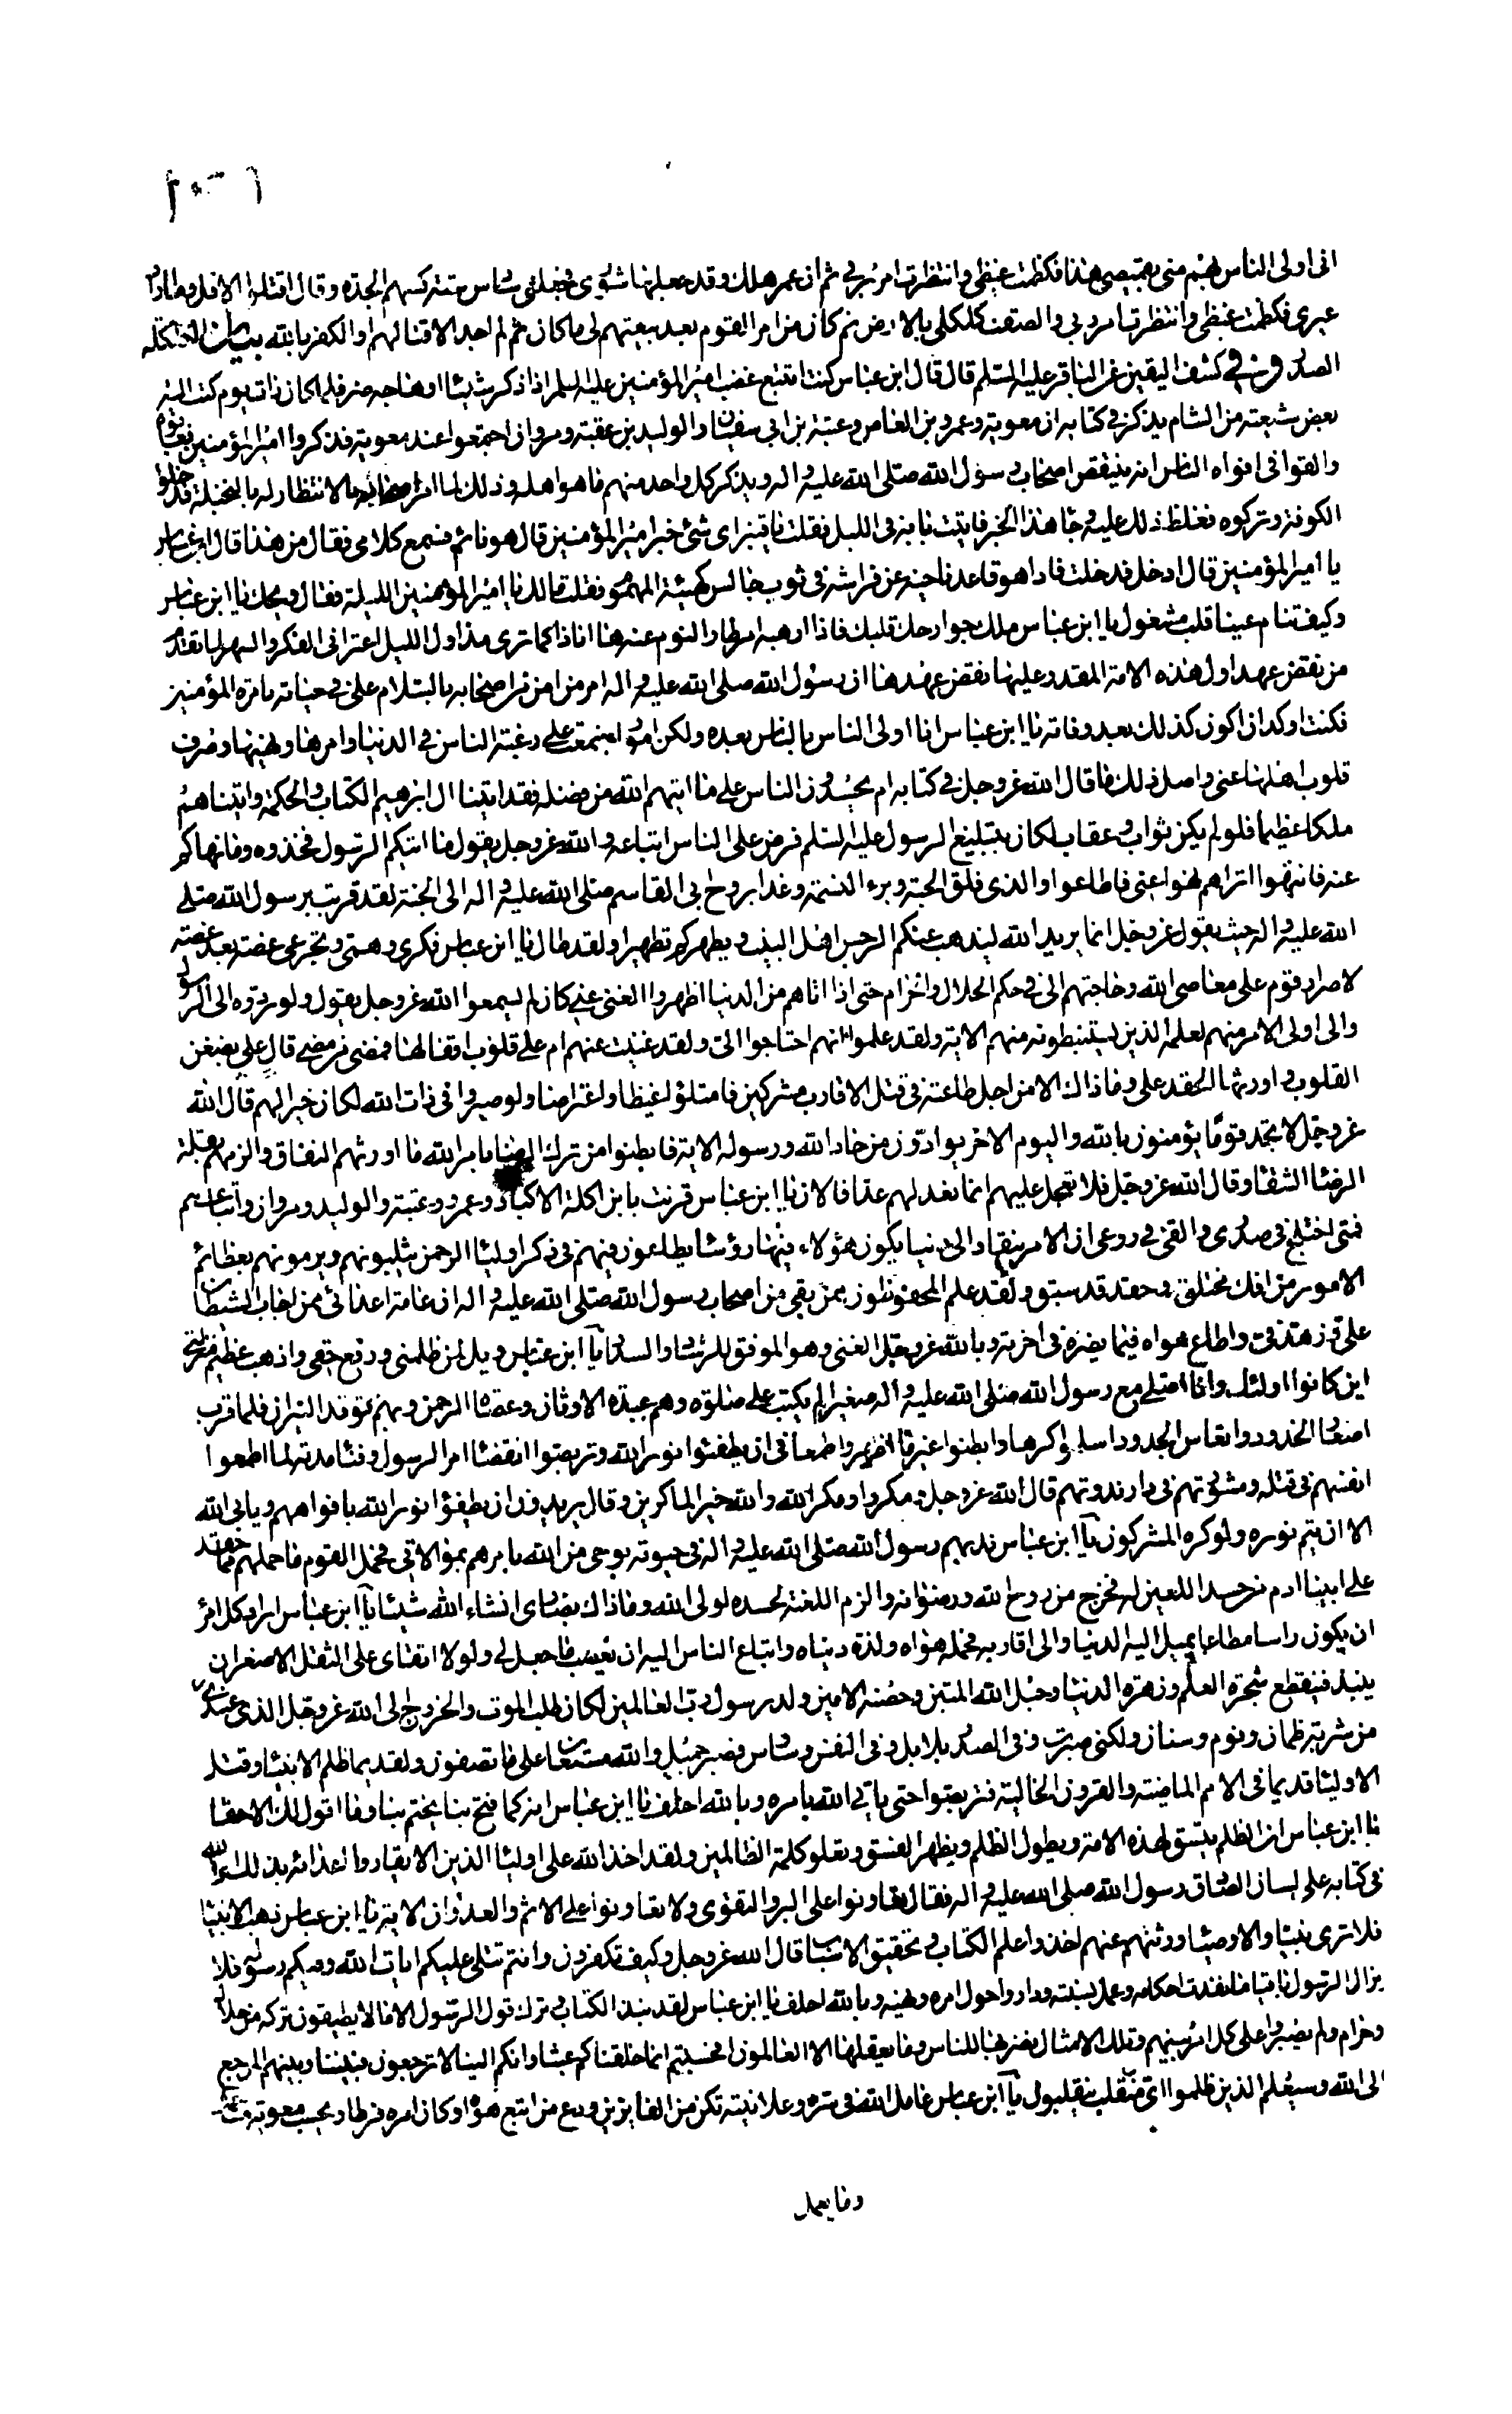 انى اولى الناس بهم منى بقميصى هذا فكظمت غيظى وانتظرت امر ربى ثم ان عمر هلك وقد جعلها شورى فجعلنى سادس ستة كسهم الجدة وقال اقتلوا الاقل وما اراد
غيرى فكظمت غيظى وانتظرت امر ربى والصقت كلكلى بالارض ثم كان من امر القوم بعد بيعتهم لى ما كان ثم لم اجد الا قتالهم او الكفر بالله بيان الكلكلة
الصدر وفى كشف اليقين عن الباقر عليه السلم قال قال ابن عباس كنت اتتبع غضب امير المؤمنين عليه السلم اذا ذكر شيئا او هاجه خبر فلما كان ذات يوم كتب اليه
بعض شيعته من الشام يذكر فى كتابه ان معوية وعمرو بن العاص وعتبة بن ابى سفيان والوليد بن عقبة ومروان اجتمعوا عند معوية فذكروا امير المؤمنين فعابوه
والقوا فى افواه الناس انه ينتقص اصحاب رسول الله صلى الله عليه واله ويذكر كل واحد منهم ما هو اهله وذلك لما امر اصحابه بالانتظار له بالنخيلة فدخلوا
الكوفة وتركوه فغلظ ذلك عليه وجا هذا الخبر فاتيت بابه فى الليل فقلت يا قنبر اى شئ خبر امير المؤمنين قال هو نائم فسمع كلامى فقال من هذا قال ابن عباس
يا امير المؤمنين قال ادخل فدخلت فاذا هو قاعد ناحية عن فراشه فى ثوب جالس كهيئة المهموم فقلت مالك يا امير المؤمنين الليلة فقال ويحك يا ابن عباس
وكيف تنام عينا قلب مشغول يا ابن عباس ملك جوارحك قلبك فاذا ارهبه امر طار النوم عنه ها انا ذا كما ترى مذ اول الليل اعترانى الفكر والسهر لما تقدم
من نقض عهد اول هذه الامة المقدر عليها نقض عهدها ان رسول الله صلى الله عليه واله امر من امر من اصحابه بالسلام على فى حياته بامرة المؤمنين
فكنت اوكد ان اكون كذلك بعد وفاته يا ابن عباس انا اولى الناس بالناس بعده ولكن امور اجتمعت على رغبة الناس فى الدنيا وامرها ونهيها وصرف
قلوب اهلها عنى واصل ذلك ما قال الله عز وجل فى كتابه ام يحسدون الناس على ما اتيهم الله من فضله فقد اتينا ال ابرهيم الكتاب والحكمة واتيناهم
ملكا عظيما فلو لم يكن ثواب وعقاب لكان بتبليغ الرسول عليه السلم فرض على الناس اتباعه والله عز وجل يقول ما اتيكم الرسول فخذوه وما نهاكم
عنه فانتهوا اتراهم نهوا عنى فاطاعوا والذى فلق الحبة وبرء النسمة وغدا بروح ابى القاسم صلى الله عليه واله الى الجنة لقد قربت برسول الله صلى
الله عليه واله حيث يقول عز وجل انما يريد الله ليذهب عنكم الرجس اهل البيت ويطهركم تطهيرا ولقد طال يا ابن عباس فكرى وهمى وتجرعى غصة بعد غصة
لامر او قوم على معاصى الله وحاجتهم الى فى حكم الحلال والحرام حتى اذا اتاهم من الدنيا اظهروا الغنى عنى كان لم يسمعوا الله عز وجل يقول ولو ردوه الى الرسول
والى اولى الامر منهم لعلمه الذين يستنبطونه منهم الاية ولقد علموا انهم احتاجوا الى ولقد غنيت عنهم ام على قلوب اقفالها فمضى من مضى قال على بضغن
القلوب واورثها الحقد على وما ذاك الا من اجل طاعته فى قتل الاقارب مشركين فامتلؤا غيظا واعتراضا ولو صبروا فى ذات الله لكان خيرا لهم قال الله
عز وجل لا تجد قوما يؤمنون بالله واليوم الاخر يوادون من حاد الله ورسوله الاية فابطنوا من ترك الرضا بامر الله ما اورثهم النفاق والزمهم بقلة
الرضا الشقا وقال الله عز وجل فلا تعجل عليهم انما نعد لهم عدا فالان يا ابن عباس قرنت بابن اكلة الاكباد وعمرو وعتبة والوليد ومروان واتباعهم
فمتى اختلج فى صدرى والقى فى روعى ان الامر ينقاد الى دنيا يكون هؤلاء فيها رؤسا يطاعون فهم فى ذكر اوليا الرحمن يثلبونهم ويرمونهم بعظائم
الامور من افك مختلق وحقد قد سبق ولقد علم المستحفظون ممن بقى من اصحاب رسول الله صلى الله عليه واله ان عامة اعدائى ممن اجاب الشيطان
على وزهد فى واطاع هواه فيما يضره فى اخرته وبالله عز وجل الغنى وهو الموفق للرشاد والسداد يا ابن عباس ويل لمن ظلمنى ودفع حقى واذهب عظيم منزلتى
اين كانوا اولئك وانا اصلى مع رسول الله صلى الله عليه واله صغيرا لم يكتب على صلوة وهم عبدة الاوثان وعصاة الرحمن وبهم توقد النيران فلما قرب
اصعار الخدود واتعاس الجدود اسلموا كرها وابطنوا غير ما اظهروا طمعا فى ان يطفئوا نور الله وتربصوا انقضا امر الرسول وفنا مدته لما اطمعوا
انفسهم فى قتله ومشورتهم فى دار ندوتهم قال الله عز وجل ومكروا ومكر الله والله خير الماكرين وقال يريدون ان يطفؤا نور الله بافواههم ويابى الله
الا ان يتم نوره ولو كره المشركون يا ابن عباس ندبهم رسول الله صلى الله عليه واله فى حيوته بوحى من الله يامرهم بموالاتى فحمل القوم ما حملهم مما حقد
على ابينا ادم من حسد اللعين له فخرج من روح الله ورضوانه والزم اللعنة لحسده لولى الله وما ذاك بضارى انشاء الله شيئا يا ابن عباس اراد كل امرئ
ان يكون راسا مطاعا يميل اليه الدنيا والى اقاربه فحمله هواه ولذة دنياه واتباع الناس اليه ان يغصب ما جعل لى ولولا اتقاى على الثقل الاصغر ان
ينبذ فينقطع شجرة العلم وزهرة الدنيا وحبل الله المتين وحصنه الامين ولد رسول رب العالمين لكان طلب الموت والخروج الى الله عز وجل الذ عندى
من شربة ظمان ونوم وسنان ولكنى صبرت وفى الصدر بلابل وفى النفس وساوس فصبر جميل والله مستعان على ما تصفون ولقديما ظلم الانبيا وقتل
الاوليا قديما فى الامم الماضية والقرون الخالية فتربصوا حتى ياتى الله بامره وبالله احلف يا ابن عباس انه كما فتح بنا يختم بنا وما اقول لك الا حقا
يا ابن عباس ان الظلم يتسق لهذه الامة ويطول الظلم ويظهر الفسق وتعلو كلمة الظالمين ولقد اخذ الله على اوليا الدين الا يقاروا اعدائه بذلك امر الله
فى كتابه على لسان الصادق رسول الله صلى الله عليه واله فقال تعاونوا على البر والتقوى ولا تعاونوا على الاثم والعدوان الاية يا ابن عباس ذهب الانبيا
فلا ترى نبيا والاوصيا ورثتهم عنهم اخذوا علم الكتاب وتحقيق الاسباب قال الله عز وجل وكيف تكفرون وانتم تتلى عليكم ايات الله وفيكم رسوله فلا
يزال الرسول باقيا ما نفدت احكامه وعمل بسنته وداروا حول امره ونهيه وبالله احلف يا ابن عباس لقد نبذ الكتاب وترك قول الرسول الا ما لا يطيقون تركه من حلال
وحرام ولم يصبروا على كل امر نبيهم وتلك الامثال نضربها للناس وما يعقلها الا العالمون افحسبتم انما خلقناكم عبثا وانكم الينا لا ترجعون فبيننا وبينهم المرجع
الى الله وسيعلم الذين ظلموا اى منقلب ينقلبون يا ابن عباس عامل الله فى سره وعلانيته تكن من الفايزين ودع من اتبع هواه وكان امره فرطا ويحسب معوية
وما يعمل